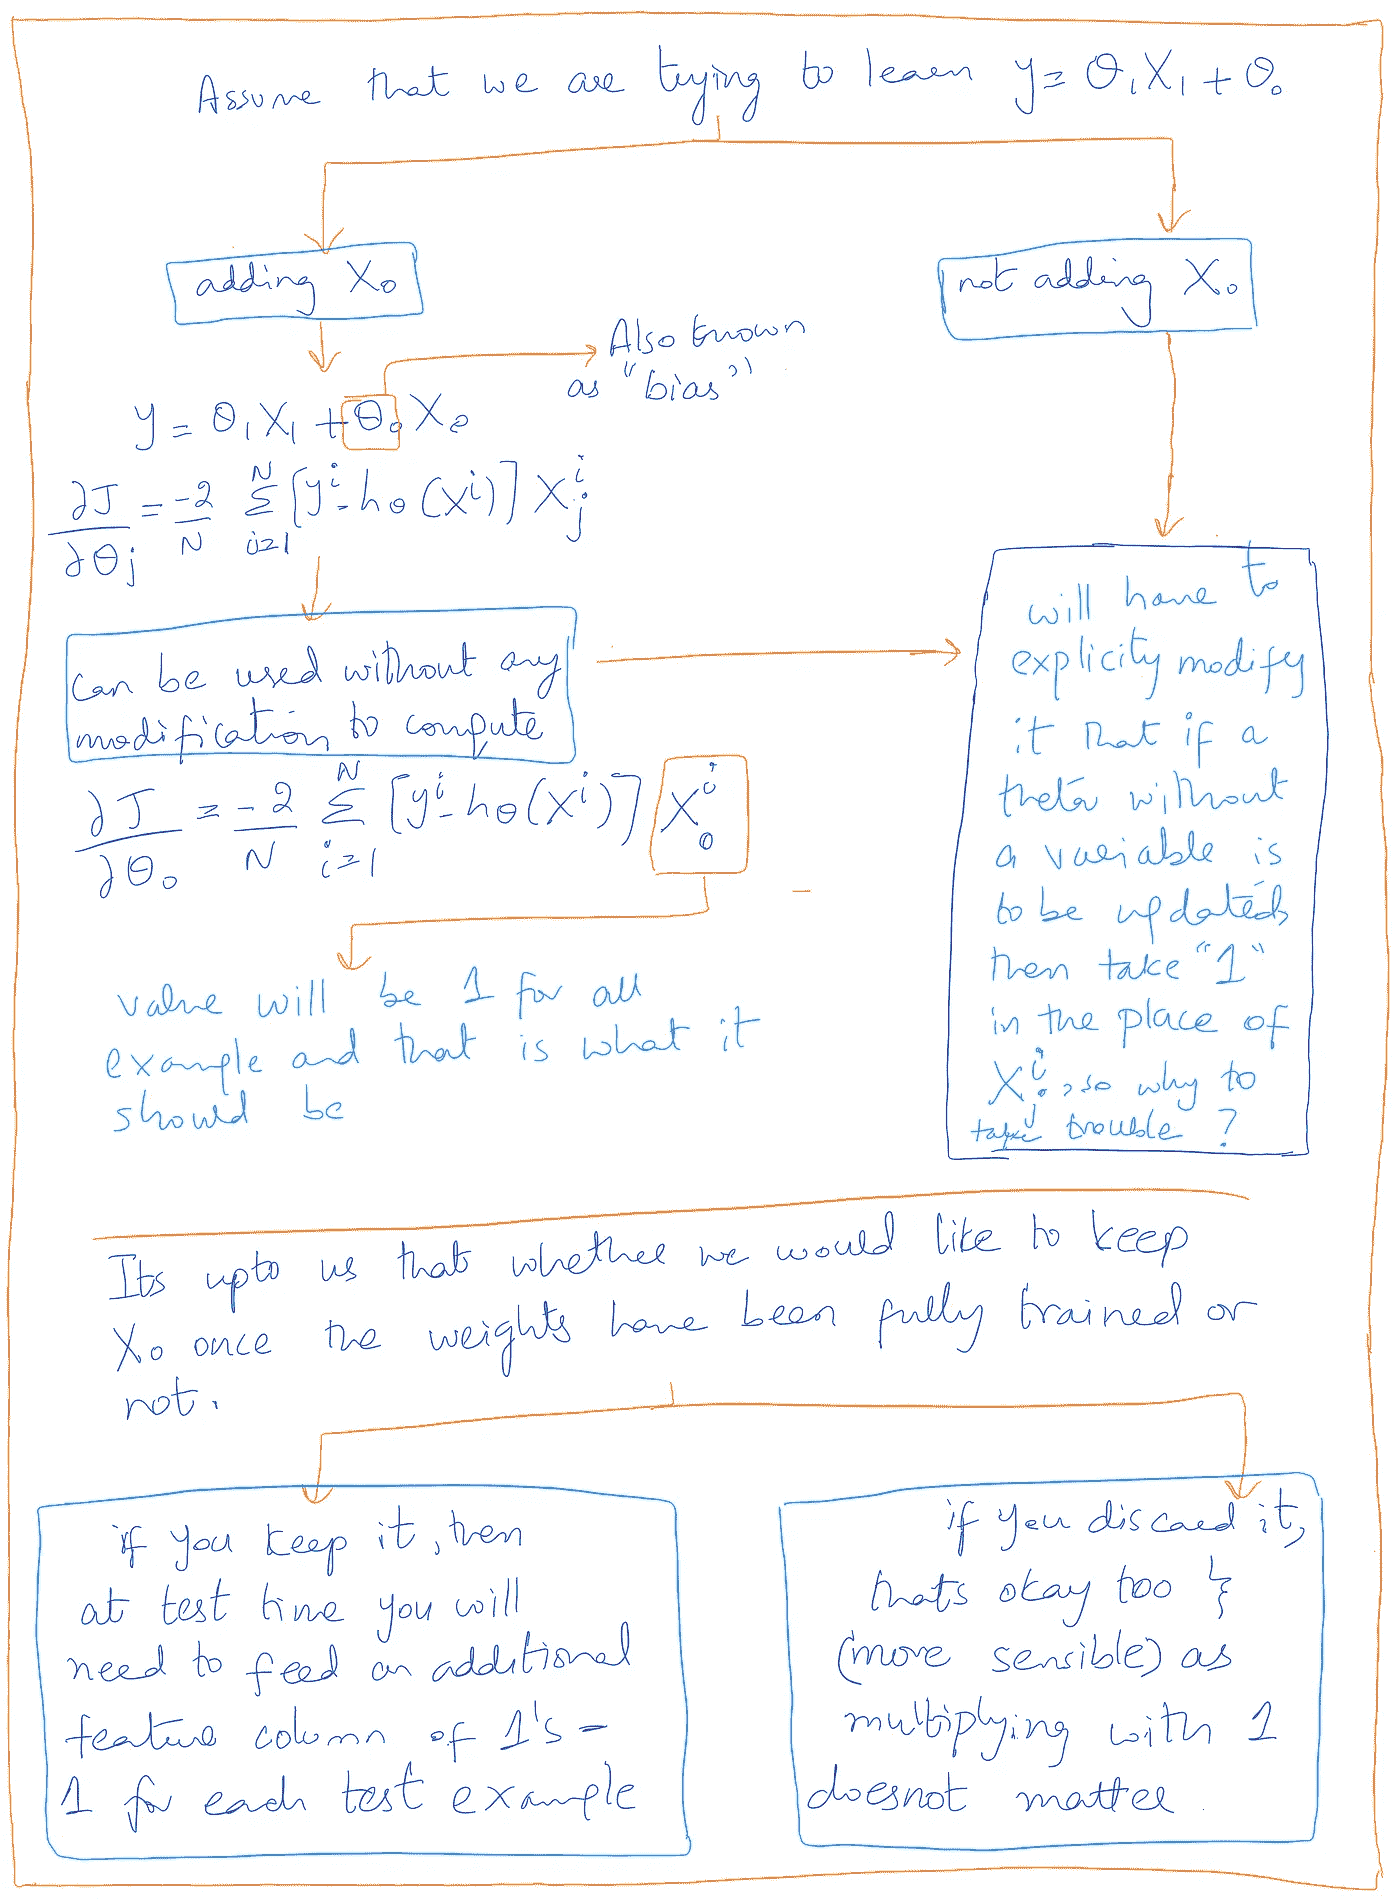 Assume that we are trying to learn y = θ₁X₁ + θ₀
adding X₀
not adding X₀
Also known
as "bias"
y = θ₁X₁ + θ₀X₀
∂J/∂θj = -2/N Σ_{i=1}^{N} [yⁱ - hθ(Xⁱ)] Xⱼⁱ
can be used without any
modification to compute
∂J/∂θ₀ = -2/N Σ_{i=1}^{N} [yⁱ - hθ(Xⁱ)] X₀ⁱ
value will be 1 for all
example and that is what it
should be
will have to
explicity modify
it that if a
theta without
a variable is
to be updated,
then take "1"
in the place of
Xⱼⁱ, so why to
take trouble ?
Its upto us that whether we would like to keep
X₀ once the weights have been fully trained or
not.
if you keep it, then
at test time you will
need to feed an additional
feature column of 1's -
1 for each test example
if you discard it,
thats okay too &
(more sensible) as
multiplying with 1
doesnot matter.